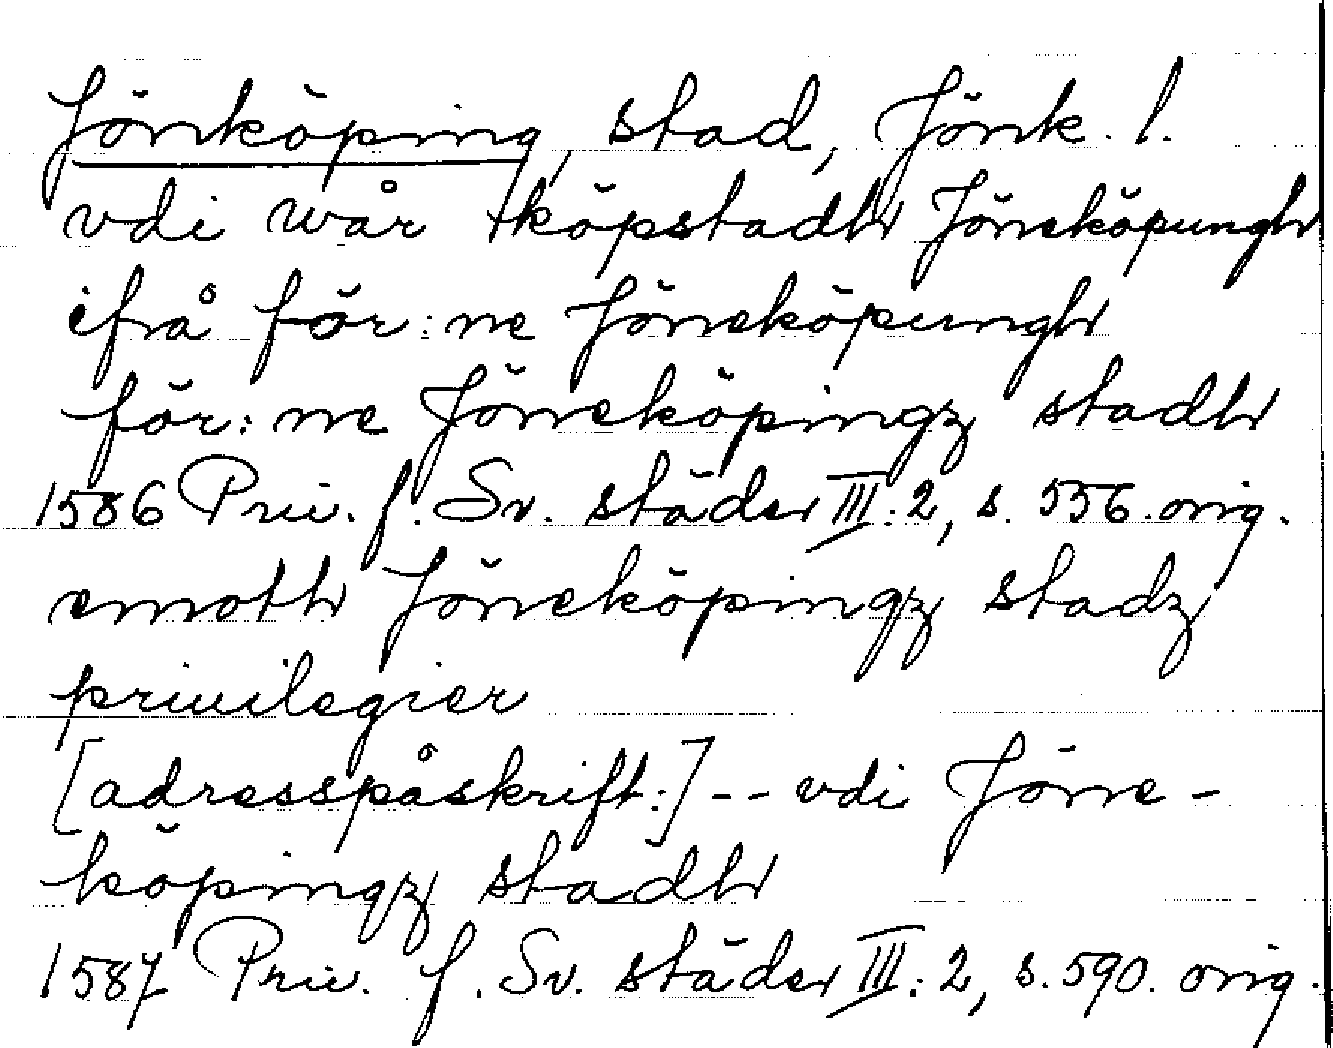 Jönköping, stad, Jönk. l.
vdi wår köpstadh Jöneköpungh
ifrå för:ne Jöneköpungh
för:ne Jöneköpingz stadh
1586 Priv. f. Sv. städer III:2, s. 556. orig.
emoth Jöneköpingz stadz
priuilegier
[adresspåskrift:] -- vdi Jöne-
köpingz stadh
1587 Priv. f. Sv. städer III:2, s. 590. orig.